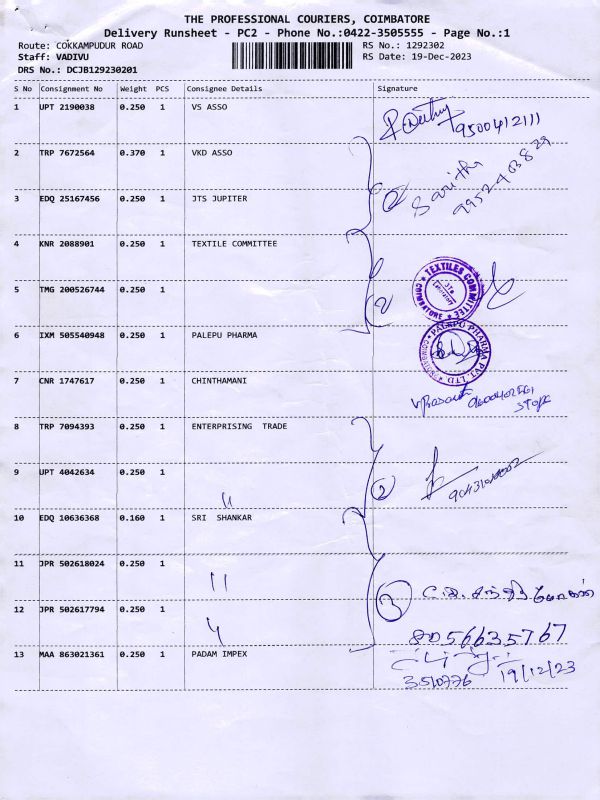 THE PROFESSIONAL COURIERS, COIMBATORE
Delivery Runsheet - PC2 - Phone No.:0422-3505555 - Page No.:1
Route: COKKAMPUDUR ROAD RS No.: 1292302
Staff: VADIVU RS Date: 19-Dec-2023
DRS No.: DCJB129230201
S No Consignment No Weight PCS Consignee Details Signature
1 UPT 2190038 0.250 1 VS ASSO
9500412111
2 TRP 7672564 0.370 1 VKD ASSO
Saritha
9952403829
3 EDQ 25167456 0.250 1 JTS JUPITER
2
4 KNR 2088901 0.250 1 TEXTILE COMMITTEE
TEXTILES COMMITTEE
COIMBATORE
5 TMG 200526744 0.250 1
2
6 IXM 505540948 0.250 1 PALEPU PHARMA
PALEPU PHARMA PVT. LTD.
COIMBATORE
7 CNR 1747617 0.250 1 CHINTHAMANI
8 TRP 7094393 0.250 1 ENTERPRISING TRADE
9 UPT 4042634 0.250 1
2
10 EDQ 10636368 0.160 1 SRI SHANKAR
11 JPR 502618024 0.250 1
3
12 JPR 502617794 0.250 1
8056635767
13 MAA 863021361 0.250 1 PADAM IMPEX
3510776 19/12/23